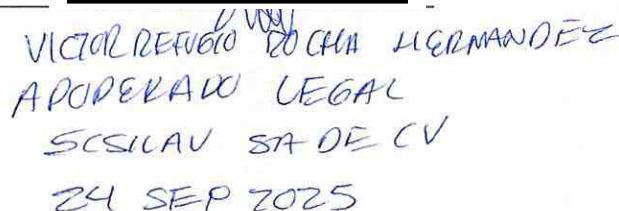 VICTOR REFUGIO ROCHA HERNANDEZ
APODERADO LEGAL
SCSILAV SA DE CV
24 SEP 2025